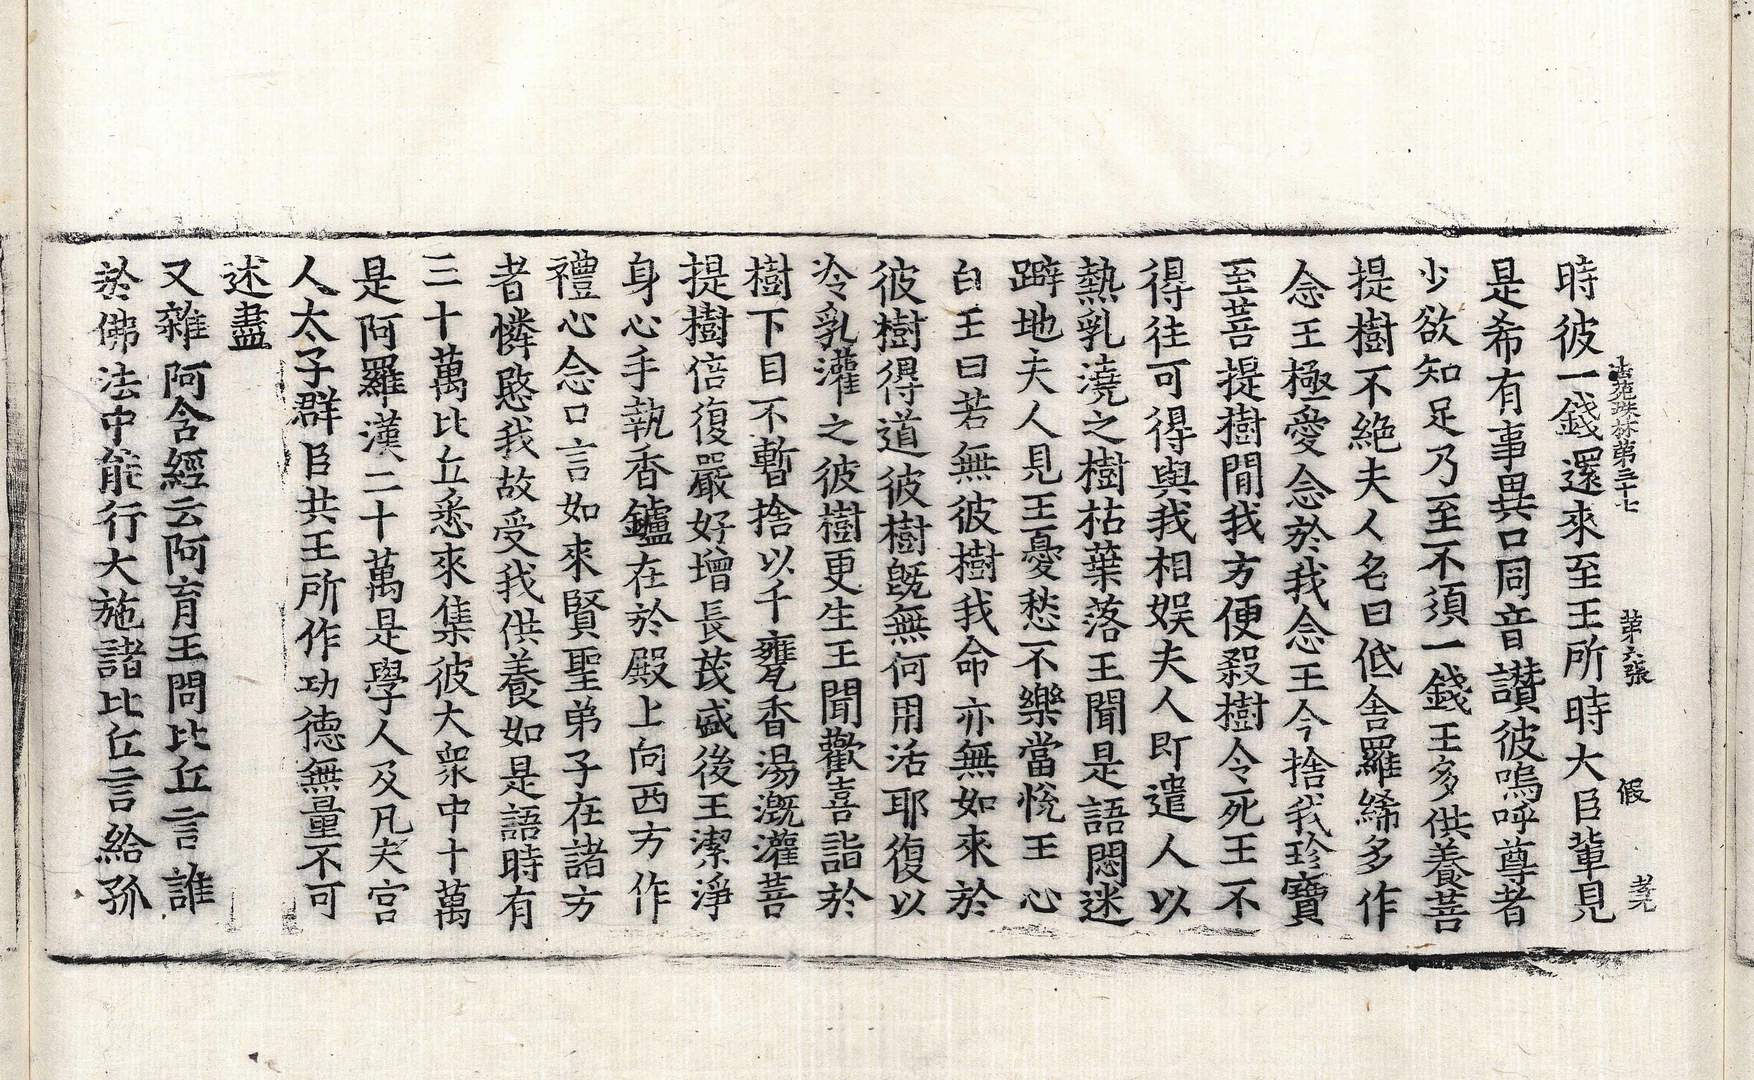 法苑珠林第三十七 第六張 假 孝元
時彼一錢還來至王所時大臣輩見
是希有事異口同音讃彼嗚呼尊者
少欲知足乃至不須一錢王多供養菩
提樹不絶夫人名曰低舍羅絺多作
念王極愛念於我念王今捨我珍寶
至菩提樹間我方便殺樹令死王不
得往可得與我相娱夫人即遣人以
熱乳澆之樹枯葉落王聞是語悶迷
躃地夫人見王憂愁不樂當悅王心
白王曰若無彼樹我命亦無如來於
彼樹得道彼樹旣無何用活耶復以
冷乳灌之彼樹更生王聞歡喜詣於
樹下目不暫捨以千甕香湯漑灌菩
提樹倍復嚴好增長茂盛後王潔淨
身心手執香鑪在於殿上向西方作
禮心念口言如來賢聖弟子在諸方
者憐愍我故受我供養如是語時有
三十萬比丘悉來集彼大衆中十萬
是阿羅漢二十萬是學人及凡夫宫
人太子群臣共王所作功德無量不可
述盡
又雜阿含經云阿育王問比丘言誰
於佛法中能行大施諸比丘言給孤